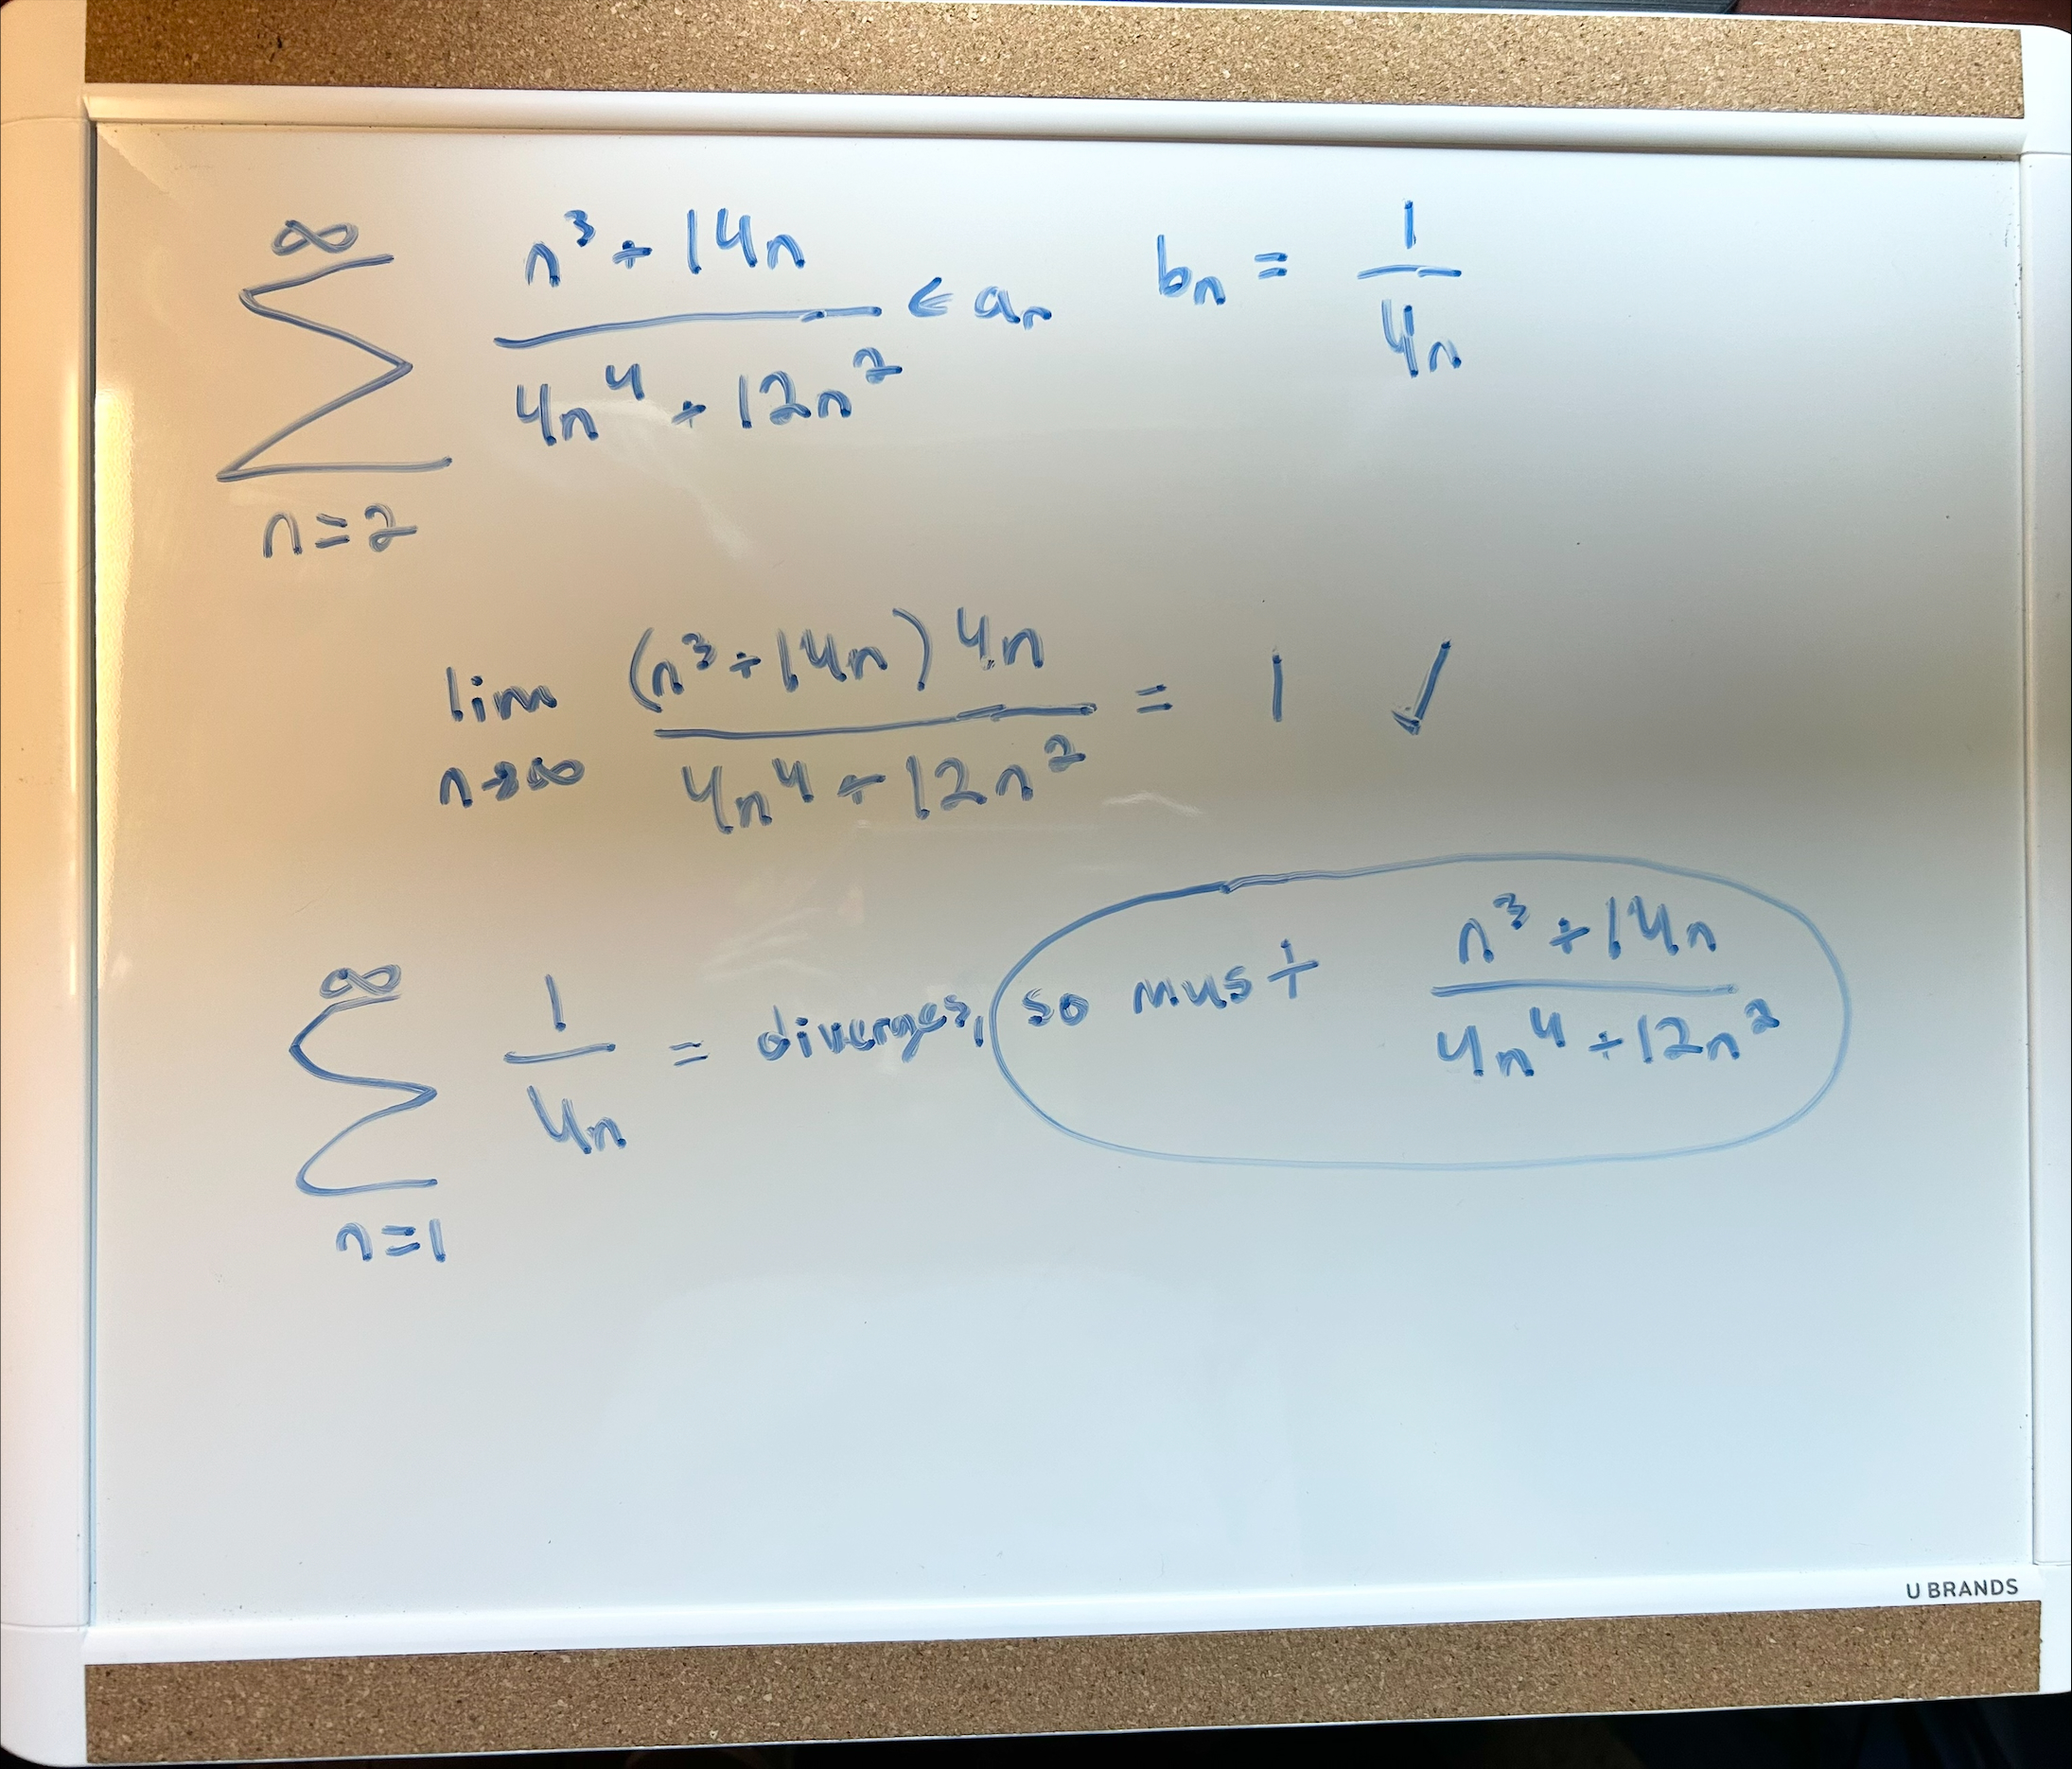 ∞ Σ n=2 (n³ + 14n)/(4n⁴ + 12n²) ← aₙ bₙ = 1/(4n)
lim n→∞ ((n³ + 14n) 4n)/(4n⁴ + 12n²) = 1 ✓
∞ Σ n=1 1/(4n) = diverges, so must (n³ + 14n)/(4n⁴ + 12n²)
U BRANDS